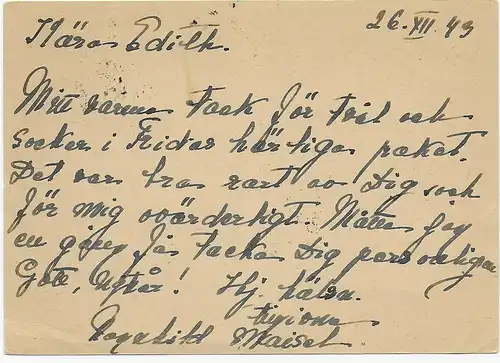 26.XII.43
Kära Edith.
Mitt varma tack för tvål och
socker i Fridas härliga paket.
Det var bra rart av Dig och
för mig ovärderligt. Måtte jag
en gång få tacka Dig personligen
Gott Nytår! Hj. hälsn.
Ragnhild
Maisel